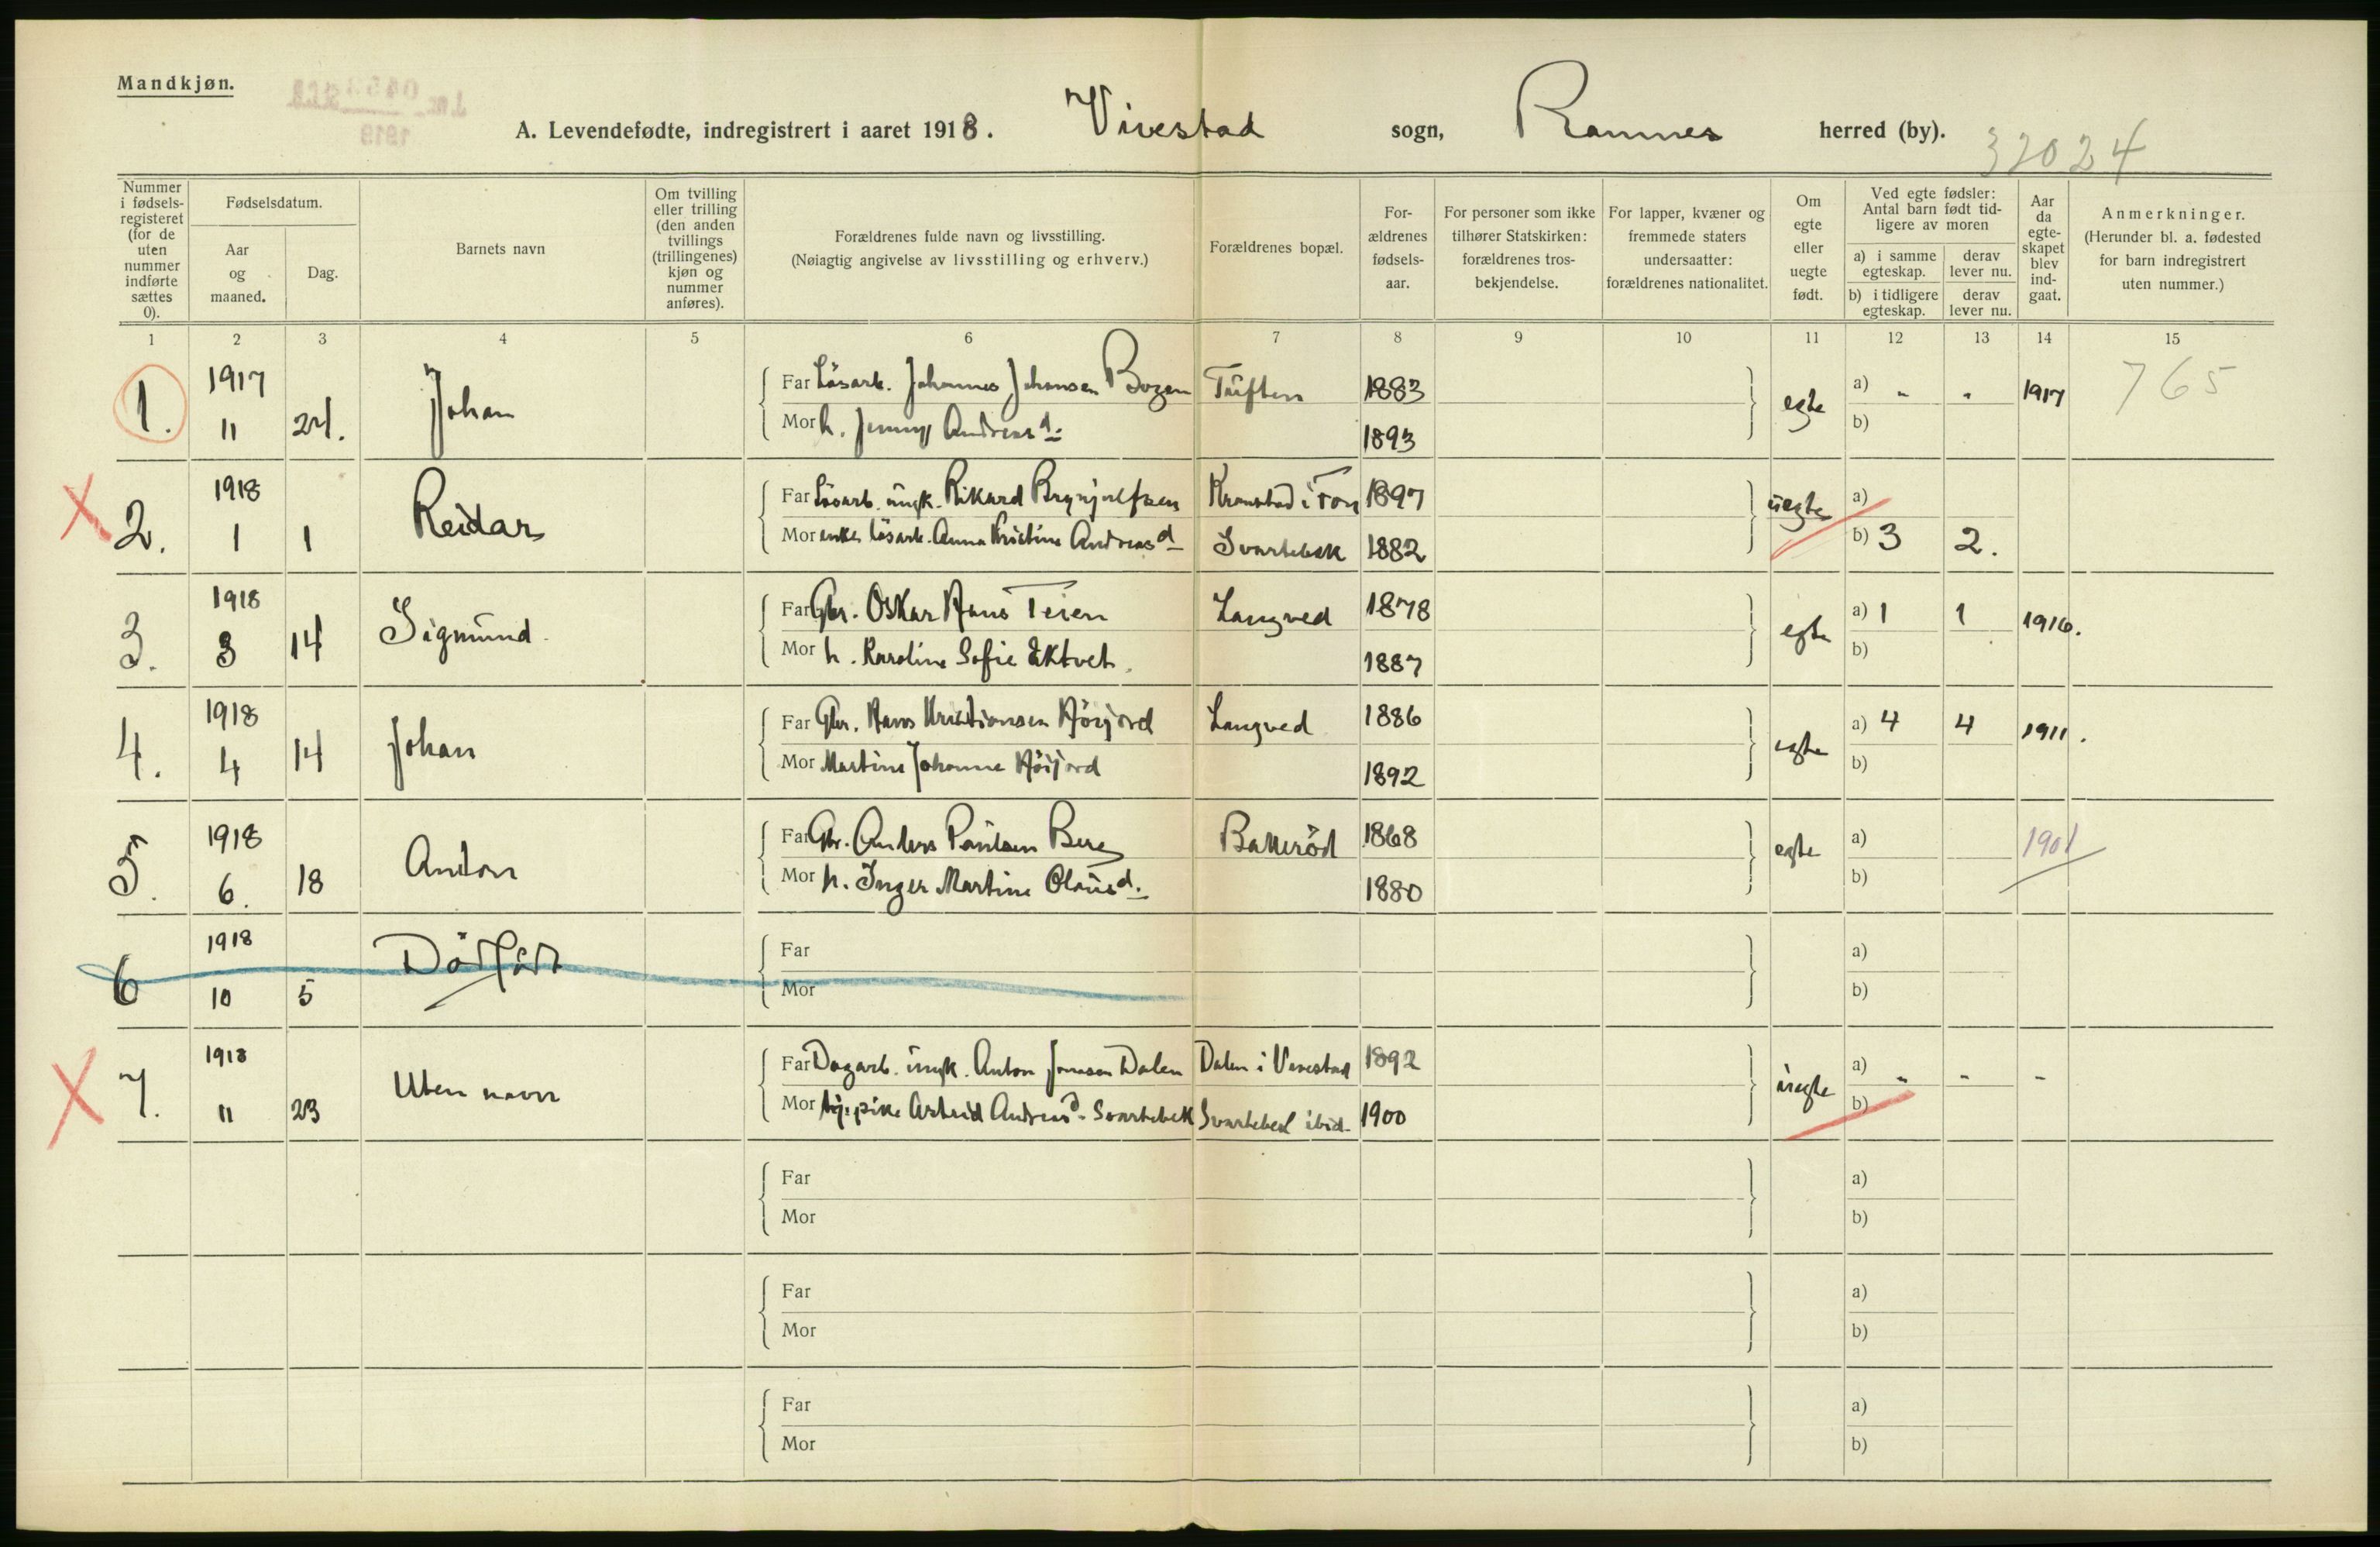 Mandkjøn.
A. Levendefødte, indregistrert i aaret 1918. Vivestad sogn, Ramnes herred (by).
32024
Nummer i fødsels-registeret (for de uten nummer indførte sættes 0).
Fødselsdatum.
Aar og maaned.
Dag.
Barnets navn
Om tvilling eller trilling (den anden tvillings (trillingenes) kjøn og nummer anføres).
Forældrenes fulde navn og livsstilling.
(Nøiagtig angivelse av livsstilling og erhverv.)
Forældrenes bopæl.
For-ældrenes fødsels-aar.
For personer som ikke tilhører Statskirken: forældrenes tros-bekjendelse.
For lapper, kvæner og fremmede staters undersaatter: forældrenes nationalitet.
Om egte eller uegte født.
Ved egte fødsler: Antal barn født tid-ligere av moren
a) i samme egteskap.
derav lever nu.
b) i tidligere egteskap.
derav lever nu.
Aar da egte-skapet blev ind-gaat.
Anmerkninger.
(Herunder bl. a. fødested for barn indregistrert uten nummer.)
1 2 3 4 5 6 7 8 9 10 11 12 13 14 15
1. 1917 11 24. Johan
Far Løsarb. Johannes Johansen Bogen Tuften 1883
Mor h. Jenny Andreasd. 1893
egte a) - - 1917 765
b)
2. 1918 1 1 Reidar
Far Løsarb. ungk. Rikard Brynjulfsen Kronstad i 1897
Mor enke løsarb. Anna Kristine Andreasd. Svartebek 1882
uegte a)
b) 3 2.
3. 1918 3 14 Sigmund
Far Gbr. Oskar Hans Teien Langved 1878
Mor h. Karoline Sofie Ektvet. 1887
egte a) 1 1 1916.
b)
4. 1918 4 14 Johan
Far Gbr. Hans Kristiansen Høijord Langved 1886
Mor Martine Johanne Høijord 1892
egte a) 4 4 1911.
b)
5. 1918 6. 18 Anton
Far Gbr. Anders Paulsen Berg Bakerød 1868
Mor h. Inger Martine Olausd. 1880
egte a) 1901
b)
6 1918 10 5 Dødfødt
Far
Mor
a)
b)
7. 1918 11 23 Uten navn
Far Dagarb. ungk. Anton Jonssen Dalen Dalen i Vivestad 1892
Mor tj. pike Astrid Andreasd. Svartebek Svartebek ibid. 1900
uegte a) - - -
b)
Far
Mor
a)
b)
Far
Mor
a)
b)
Far
Mor
a)
b)